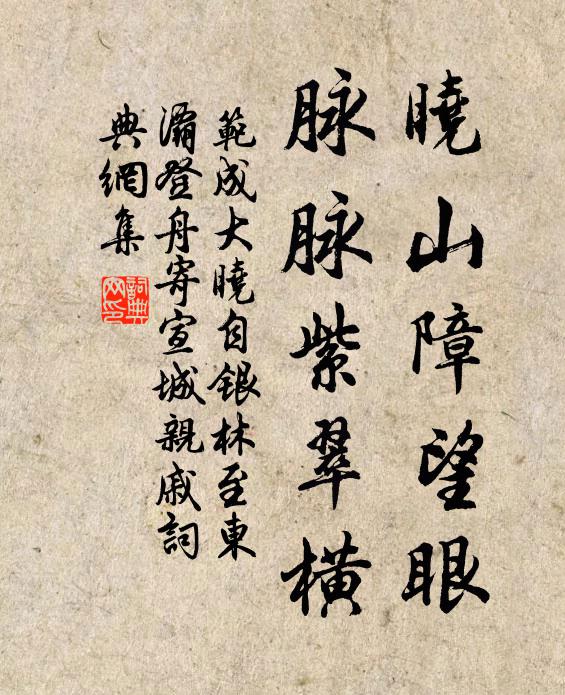 曉山障望眼
脉脉紫翠橫
範成大曉自銀林至東
灞登舟寄宣城親戚詞
典網集
詞典網印